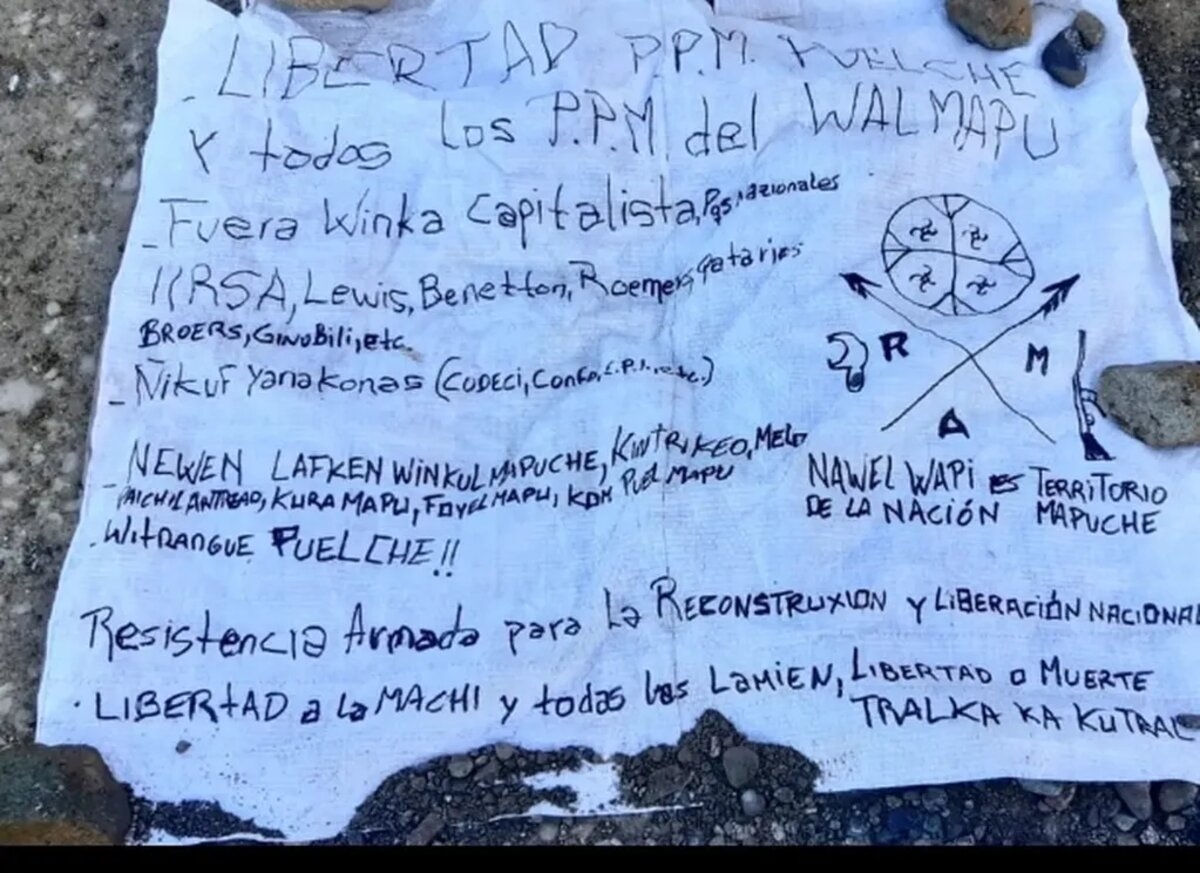 - LIBERTAD P.P.M. PUELCHE
Y todos los P.P.M del WALMAPU
- Fuera Winka Capitalista, Pgs nazionales
IIRSA, Lewis, Benetton, Roemers, qataries
BROERS, GinoBili, etc.
- Ñikuf Yanakonas (CODECI, Confo, C.P.I., etc.)
- NEWEN LAFKEN WINKUL MAPUCHE, KINTRIKEO, MELO
PAICHIL ANTREAO, KURA MAPU, FOYEL MAPU, KDM PUEL MAPU
. WITRANGUE PUELCHE!!
R M
A
NAWEL WAPI es TERRITORIO
DE LA NACIÓN MAPUCHE
Resistencia Armada para la RECONSTRUXION y LIBERACIÓN NACIONAL
. LIBERTAD a la MACHI y todas las LAMIEN, LIBERTAD o MUERTE
TRALKA KA KUTRAL